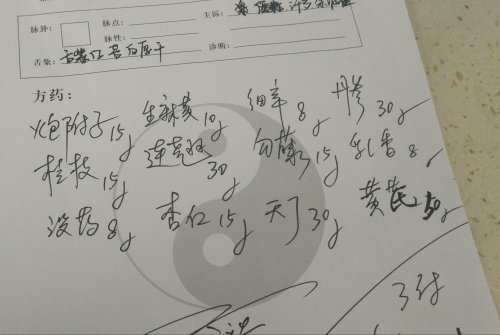 脉卦： 脉点： 主诉：
脉性：
舌象： 苔白厚干 诊断：
方药：
炮附子15g 生麻黄10g 细辛8g 丹参30g
桂枝15g 连翘30g 勾藤15g 乳香8g
没药8g 杏仁15g 天丁30g 黄芪50g
3付